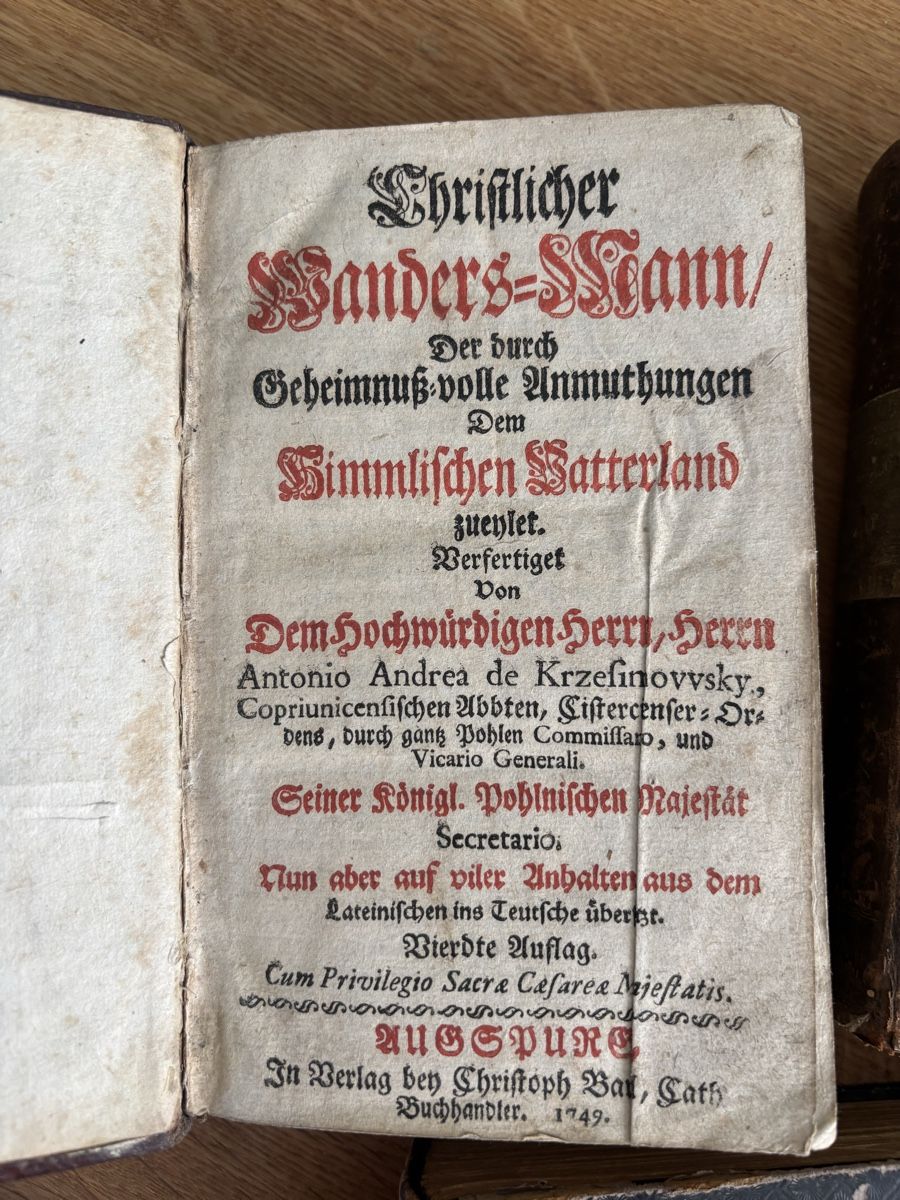 Christlicher
Wanders=Mann/
Der durch
Geheimnuß-volle Anmuthungen
Dem
Himmlischen Vatterland
zueylet.
Verfertiget
Von
Dem Hochwürdigen Herrn, Herrn
Antonio Andrea de Krzeſinovvsky,
Copriunicenſiſchen Abbten, Ciſtercenſer=Or=
dens, durch gantz Pohlen Commiſſaro, und
Vicario Generali.
Seiner Königl. Pohlniſchen Majeſtät
Secretario.
Nun aber auf viler Anhalten aus dem
Lateiniſchen ins Teutſche überſetzt.
Vierdte Auflag.
Cum Privilegio Sacræ Cæſareæ Mjeſtatis.
AUGSPURG,
In Verlag bey Chriſtoph Cath
Buchhandler. 1749.